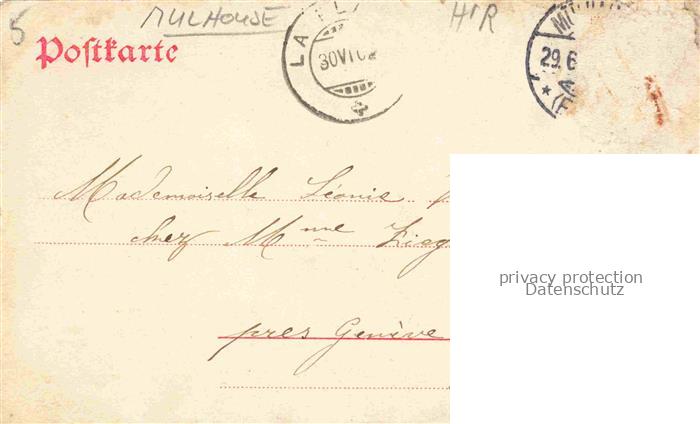 5 MULHOUSE HR
Postkarte
LA
30 VI 02
29.6
Mademoiselle Léonie
chez Mme
près Genève
privacy protection
Datenschutz